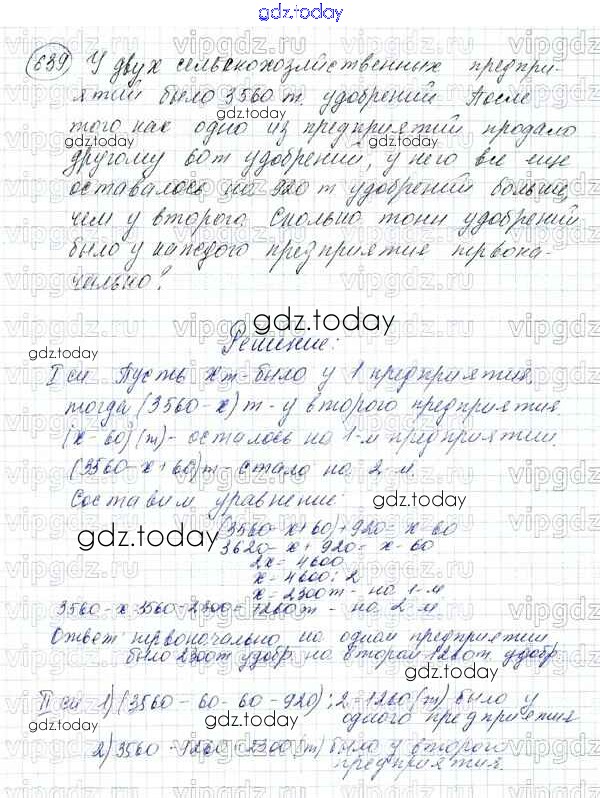 gdz.today
639 У двух сельскохозяйственных предпри-
ятий было 3560 т. удобрений После
того как одно из предприятий продало
другому 60т удобрений, у него все еще
оставалось на 920 т удобрений больше,
чем у второго. Сколько тонн удобрений
было у каждого предприятия первона-
чально?
Решение:
I сп Пусть xт - было у 1 предприятия,
тогда (3560-x)т - у второго предприятия
(x-60)(т) - осталось на 1-м предприятии.
(3560-x+60)т - стало на 2-м
Составим уравнение:
(3560-x+60)+920=x-60
3620-x+920=x-60
2x=4600
x=4600:2
x=2300т - на 1-м
3560-x=3560-2300=1260т - на 2 м
Ответ первоначально на одном предприятии
было 2300т удобр. на втором 1260т удобр
II сп 1) (3560-60-60-920):2=1260(т) было у
одного предприятия
2) 3560-1260=2300(т) было у второго
предприятия.